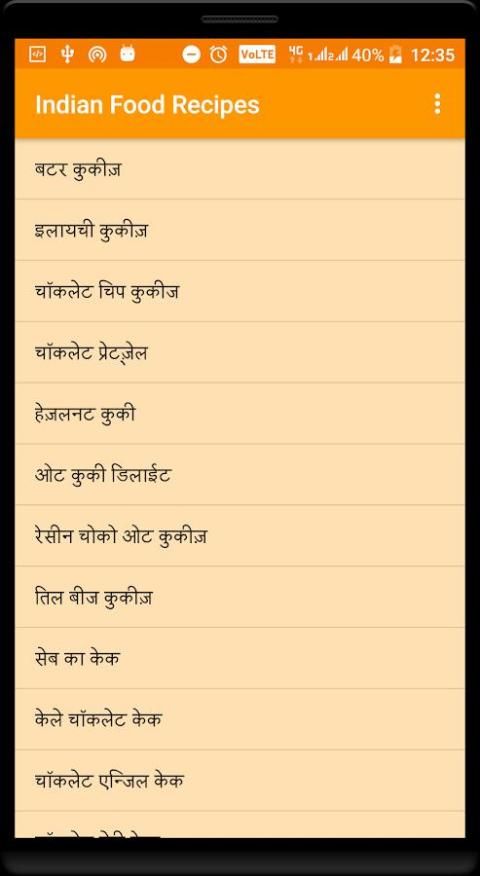 VoLTE 4G 1 2 40% 12:35
Indian Food Recipes
बटर कुकीज़
इलायची कुकीज़
चॉकलेट चिप कुकीज
चॉकलेट प्रेटज़ेल
हेज़लनट कुकी
ओट कुकी डिलाईट
रेसीन चोको ओट कुकीज़
तिल बीज कुकीज़
सेब का केक
केले चॉकलेट केक
चॉकलेट एन्जिल केक